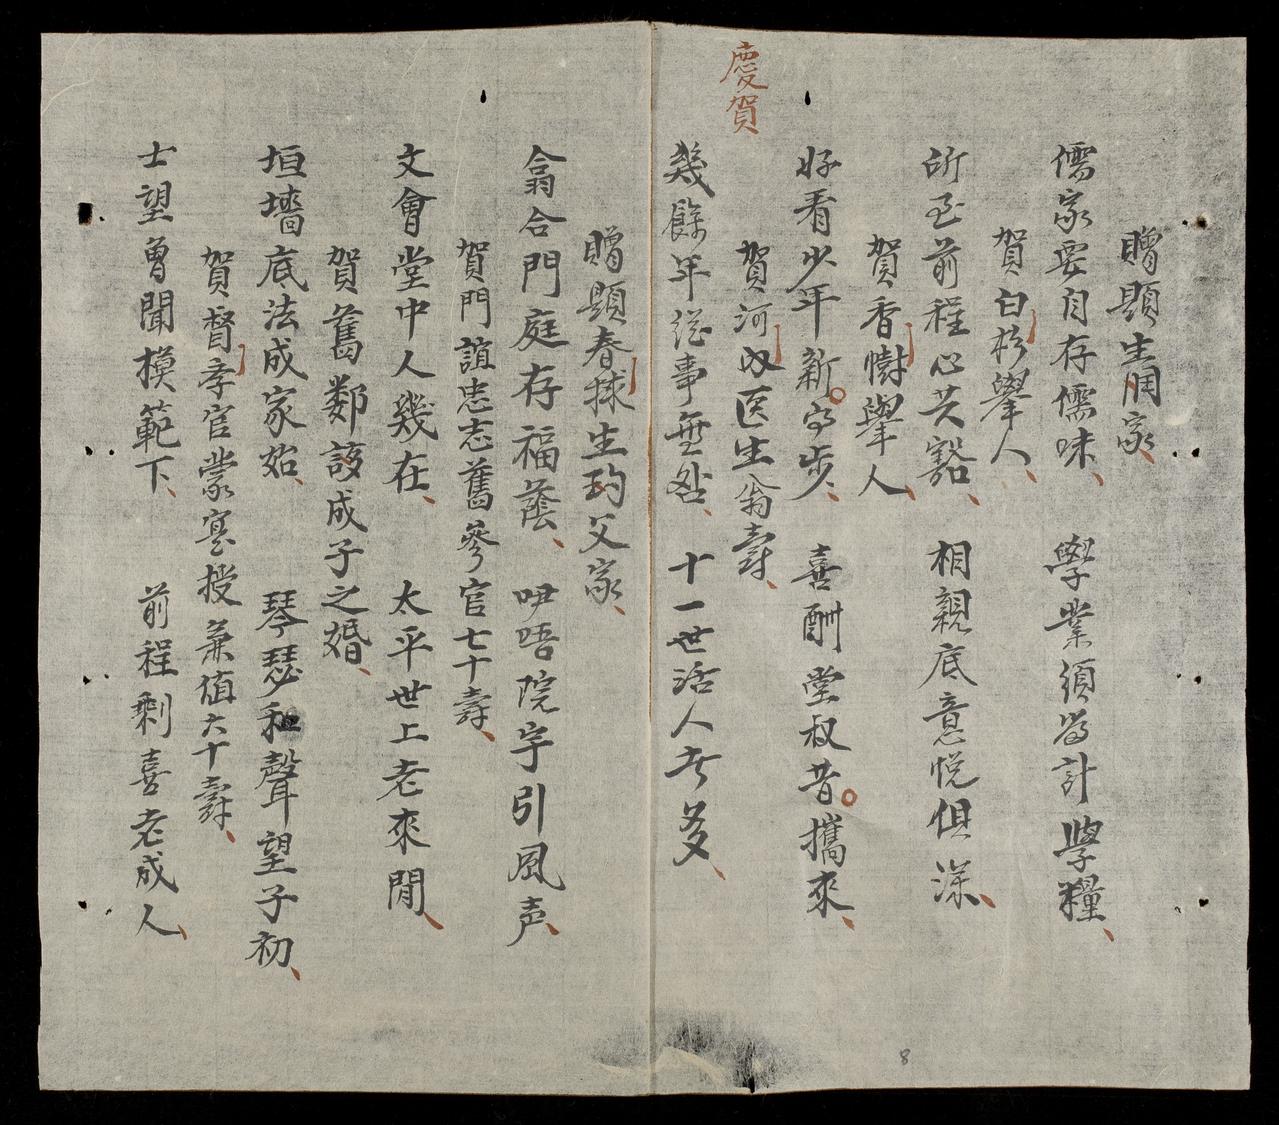 贈題生润家
儒家要自存儒味 學業須為計學糧
賀白杉舉人
所至前程心共豁 相親底意悅俱深
賀香樹舉人
好看少年新前步 喜酬堂叔昔攜來
慶賀
賀河内医生翁壽
幾餘年從事無咎 十一世活人者多
贈題春球生玓父家
翕合門庭存福蔭 咿唔院宇引風声
賀門誼忠志舊參官七十壽
文會堂中人幾在 太平世上老來閒
賀舊鄰該成子之婚
垣墻底法成家始 琴瑟和聲望子初
賀督孝官蒙寔授兼值六十壽
士望曾聞模範下 前程剩喜老成人
8